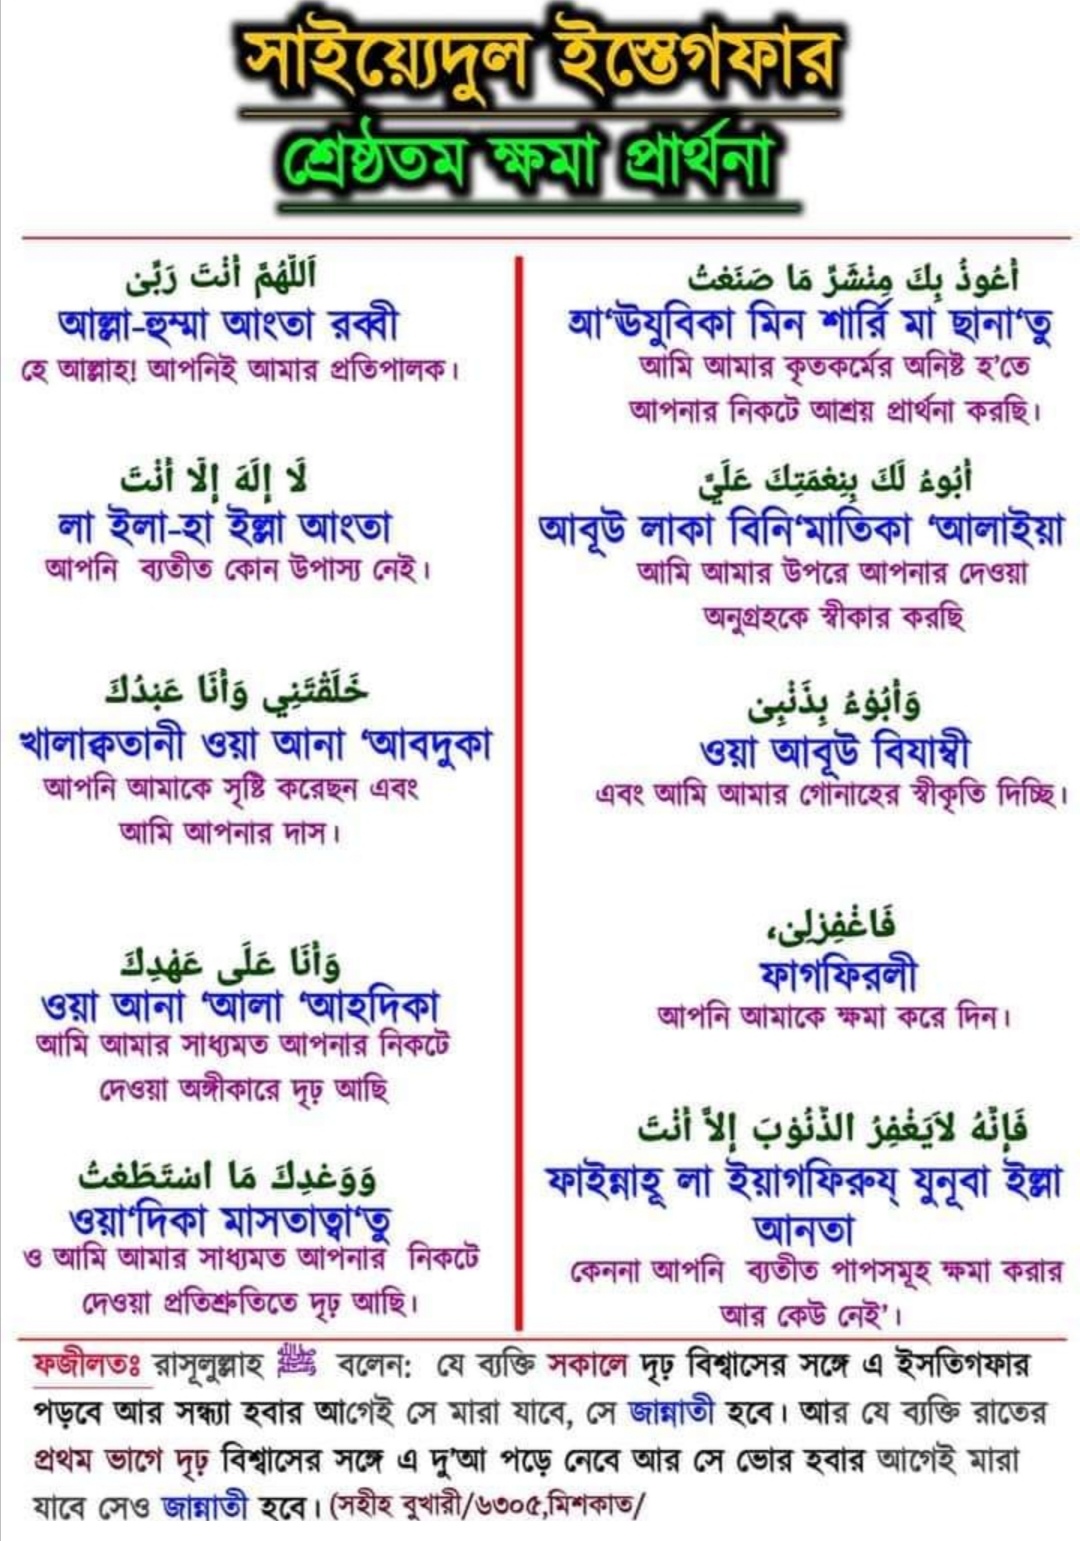 সাইয়্যেদুল ইস্তেগফার
শ্রেষ্ঠতম ক্ষমা প্রার্থনা
اَللّٰهُمَّ أَنْتَ رَبِّىْ
আল্লা-হুম্মা আংতা রব্বী
হে আল্লাহ! আপনিই আমার প্রতিপালক।
لَا إِلَهَ إِلَّا أَنْتَ
লা ইলা-হা ইল্লা আংতা
আপনি ব্যতীত কোন উপাস্য নেই।
خَلَقْتَنِي وَأَنَا عَبْدُكَ
খালাক্বতানী ওয়া আনা ‘আবদুকা
আপনি আমাকে সৃষ্টি করেছন এবং
আমি আপনার দাস।
وَأَنَا عَلَى عَهْدِكَ
ওয়া আনা ‘আলা ‘আহদিকা
আমি আমার সাধ্যমত আপনার নিকটে
দেওয়া অঙ্গীকারে দৃঢ় আছি
وَوَعْدِكَ مَا اسْتَطَعْتُ
ওয়া‘দিকা মাসতাত্বা‘তু
ও আমি আমার সাধ্যমত আপনার নিকটে
দেওয়া প্রতিশ্রুতিতে দৃঢ় আছি।
أَعُوذُ بِكَ مِنْشَرِّ مَا صَنَعْتُ
আ‘ঊযুবিকা মিন শার্রি মা ছানা‘তু
আমি আমার কৃতকর্মের অনিষ্ট হ’তে
আপনার নিকটে আশ্রয় প্রার্থনা করছি।
أَبُوءُ لَكَ بِنِعْمَتِكَ عَلَيَّ
আবূউ লাকা বিনি‘মাতিকা ‘আলাইয়া
আমি আমার উপরে আপনার দেওয়া
অনুগ্রহকে স্বীকার করছি
وَأَبُوْءُ بِذَنْبِىْ
ওয়া আবূউ বিযাম্বী
এবং আমি আমার গোনাহের স্বীকৃতি দিচ্ছি।
فَاغْفِرْلِىْ،
ফাগফিরলী
আপনি আমাকে ক্ষমা করে দিন।
فَإِنَّهُ لاَيَغْفِرُ الذُّنُوْبَ إِلاَّ أَنْتَ
ফাইন্নাহূ লা ইয়াগফিরুয্ যুনূবা ইল্লা
আনতা
কেননা আপনি ব্যতীত পাপসমূহ ক্ষমা করার
আর কেউ নেই’।
ফজীলতঃ রাসূলুল্লাহ ﷺ বলেন: যে ব্যক্তি সকালে দৃঢ় বিশ্বাসের সঙ্গে এ ইসতিগফার
পড়বে আর সন্ধ্যা হবার আগেই সে মারা যাবে, সে জান্নাতী হবে। আর যে ব্যক্তি রাতের
প্রথম ভাগে দৃঢ় বিশ্বাসের সঙ্গে এ দু'আ পড়ে নেবে আর সে ভোর হবার আগেই মারা
যাবে সেও জান্নাতী হবে। (সহীহ বুখারী/৬৩০৫,মিশকাত/